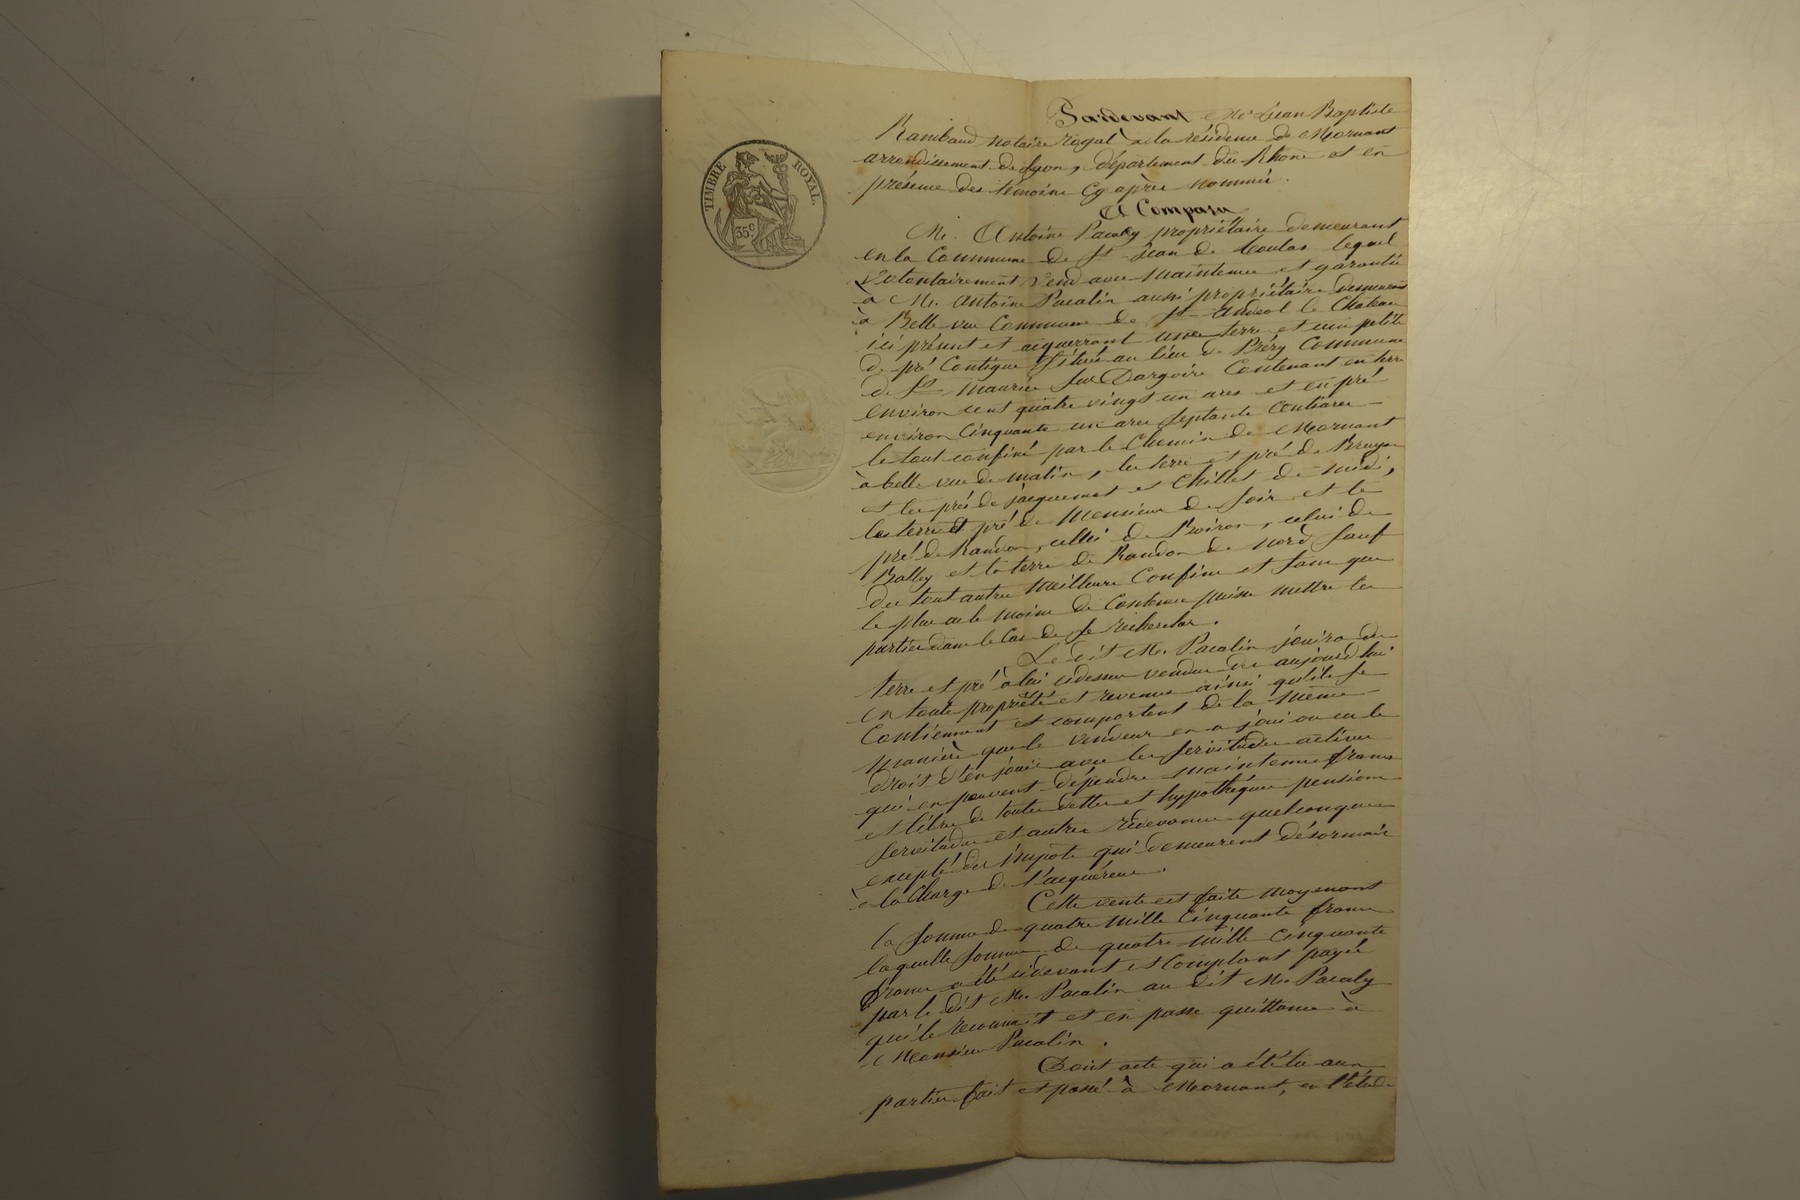 TIMBRE ROYAL.
35c.
Pardevant Me Jean Baptiste
Rambaud notaire royal à la résidence de Mornant
arrondissement de Lyon, département du Rhône et en
présence des témoins cy après nommés.
A Comparu
Mr. Antoine Pacaly propriétaire demeurant
en la Commune de St Jean de Toulas lequel
volontairement vend avec maintenue et garantie
à Mr. Antoine Pacalin aussi propriétaire demeurant
à Belle vue Commune de St Andeol le Chateau
ici présent et acquerrant une terre et un petite
de pré Contigue Situés au lieu de Commune
de St Maurice Sur Dargoire Contenant en terre
environ cent quatre vingt un ares et en pré
environ Cinquante un ares Septante Centiares
le tout confiné par le Chemin de Mornant
à belle vue de matin, les terre et pré de Bruyas
et les prés de Jacquemot et Chillet de midi,
les terre et pré de Monsieur de Soir et le
pré de Randon, celui de Boiron, celui de
Bally et la terre de Randon de nord Sauf
du tout autres meilleurs Confins et Sans que
le plus ou le moins de Contenue puisse mettre les
parties dans le Cas de Se rechercher.
Le dit Mr. Pacalin jouira des
terre et pré à lui cidessus vendus dès aujourd'hui
en toute propriété et revenus ainsi qu'ils Se
Contiennent et comportent de la même
manière que le vendeur en a joui ou eu le
droit d'en jouir avec les Servitudes actives
qui en peuvent dépendre maintenus francs
et libres de toutes dettes et hypothèques pensions
Servitudes et autres redevances quelconques
excepté des impots qui demeurent désormais
à la Charge de l'acquéreur.
Cette vente est faite moyenant
la Somme de quatre mille Cinquante francs
laquelle Somme de quatre mille Cinquante
francs a été cidevant et Comptant payée
par le dit Mr. Pacalin au dit Mr. Pacaly
qui le reconnait et en passe quittance à
Monsieur Pacalin.
Dont acte qui a été lu aux
parties fait et passé à Mornant, en l'étude